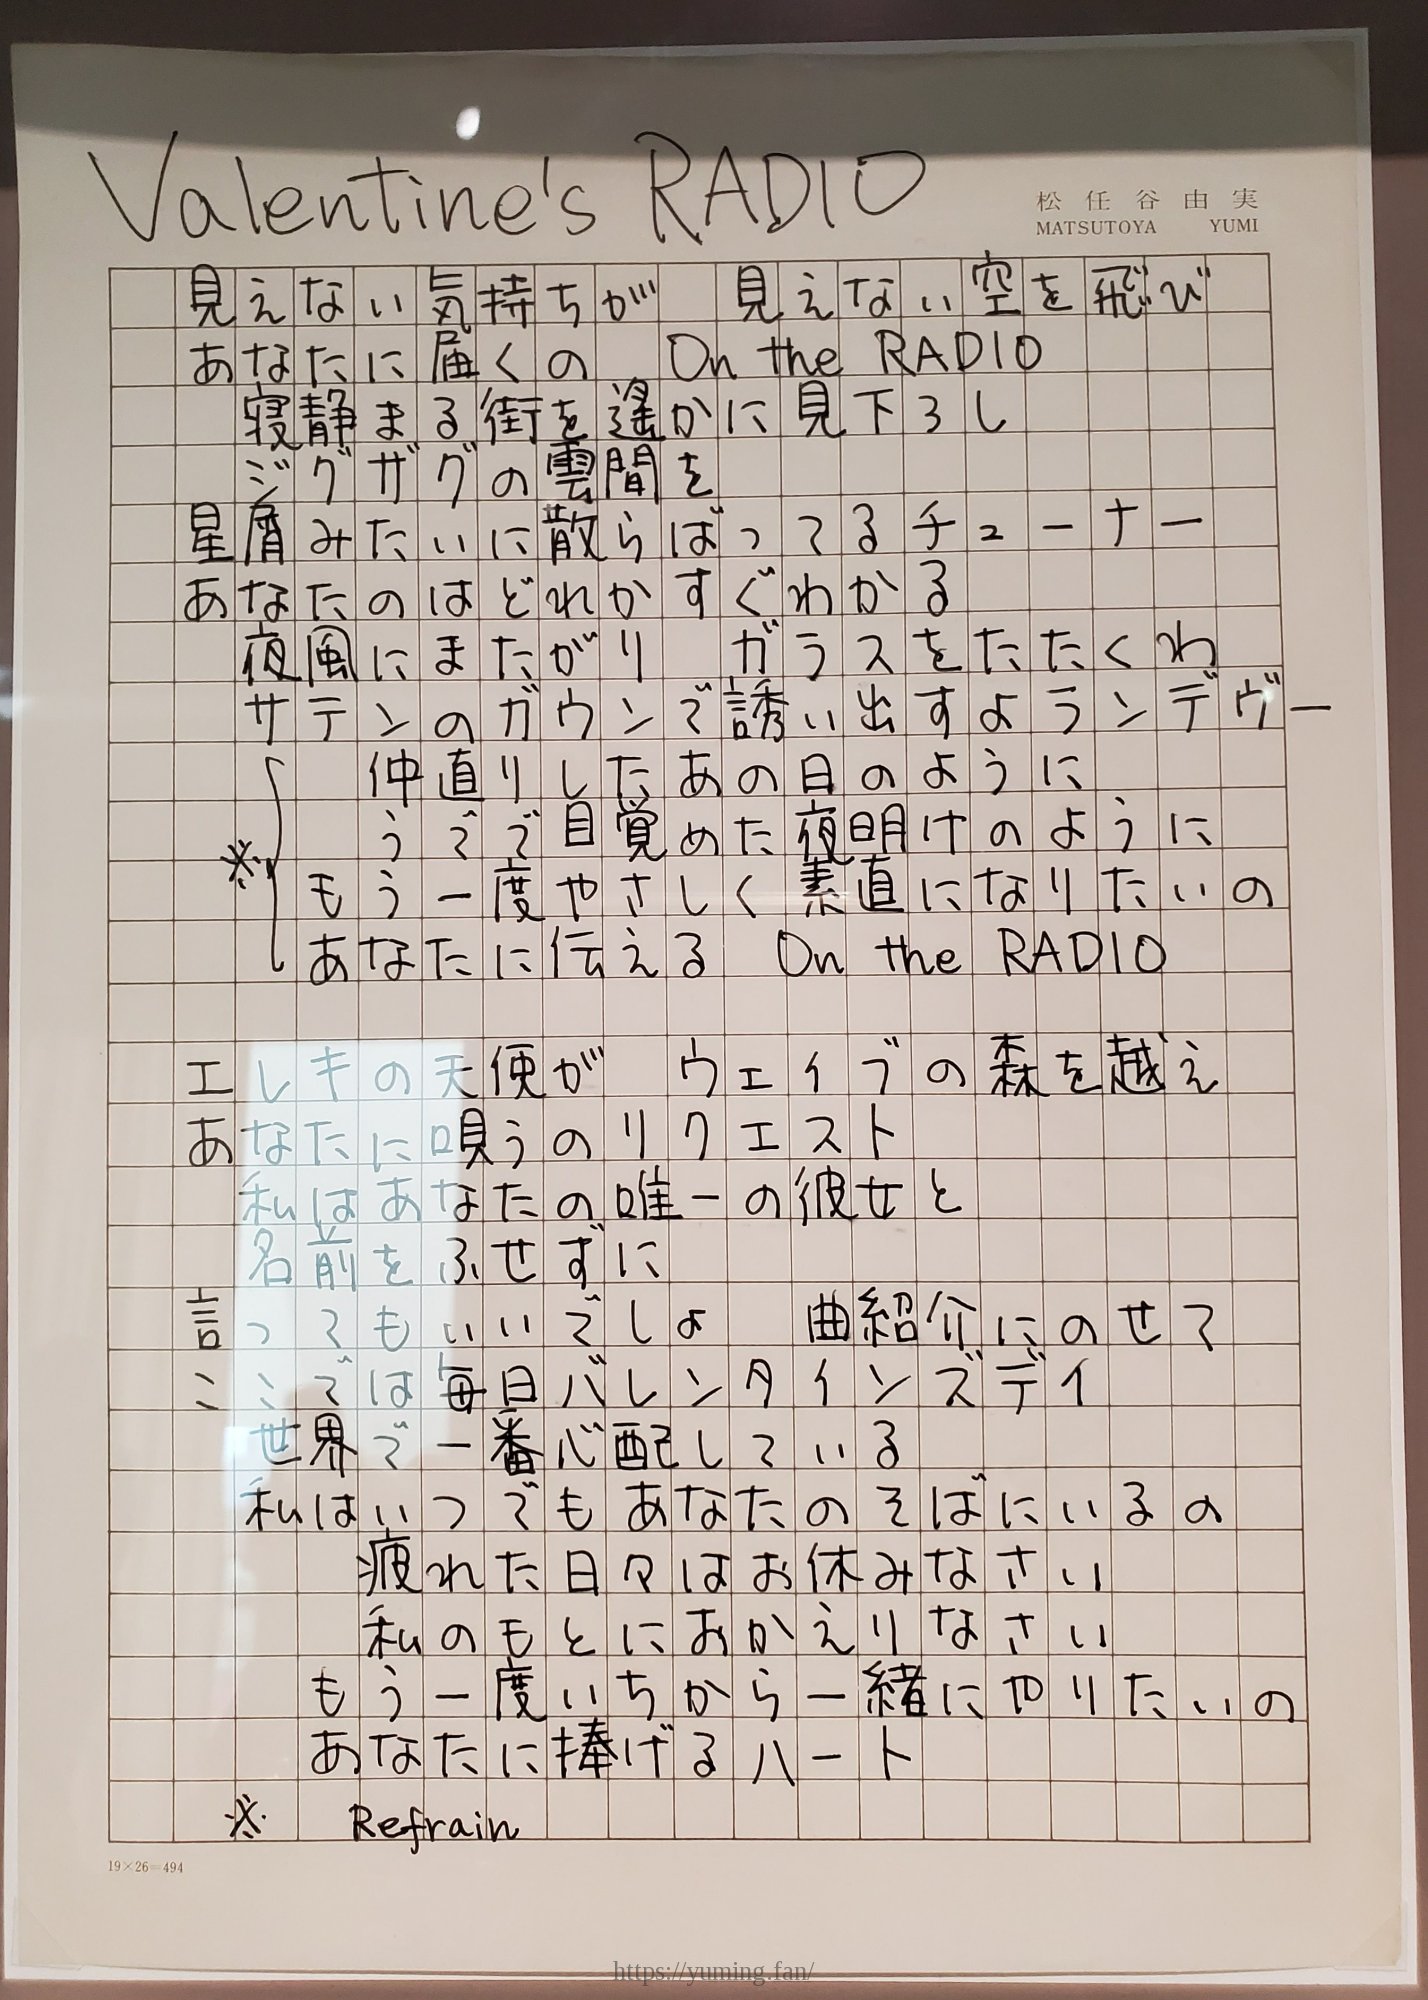 Valentine's RADIO
松任谷由実
MATSUTOYA YUMI
見えない気持ちが 見えない空を飛び
あなたに届くの On the RADIO
寝静まる街を遥かに見下ろし
ジグザグの雲間を
星屑みたいに散らばってるチューナー
あなたのはどれかすぐわかる
夜風にまたがり ガラスをたたくわ
サテンのガウンで誘い出すよランデヴー
仲直りしたあの日のように
うでで目覚めた夜明けのように
※
もう一度やさしく素直になりたいの
あなたに伝える On the RADIO
エレキの天使が ウェイブの森を越え
あなたに唄うのリクエスト
私はあなたの唯一の彼女と
名前をふせずに
言ってもいいでしょ 曲紹介にのせて
ここでは毎日バレンタインズデイ
世界で一番心配している
私はいつでもあなたのそばにいるの
疲れた日々はお休みなさい
私のもとにおかえりなさい
もう一度いちから一緒にやりたいの
あなたに捧げるハート
※ Refrain
19×26=494
https://yuming.fan/